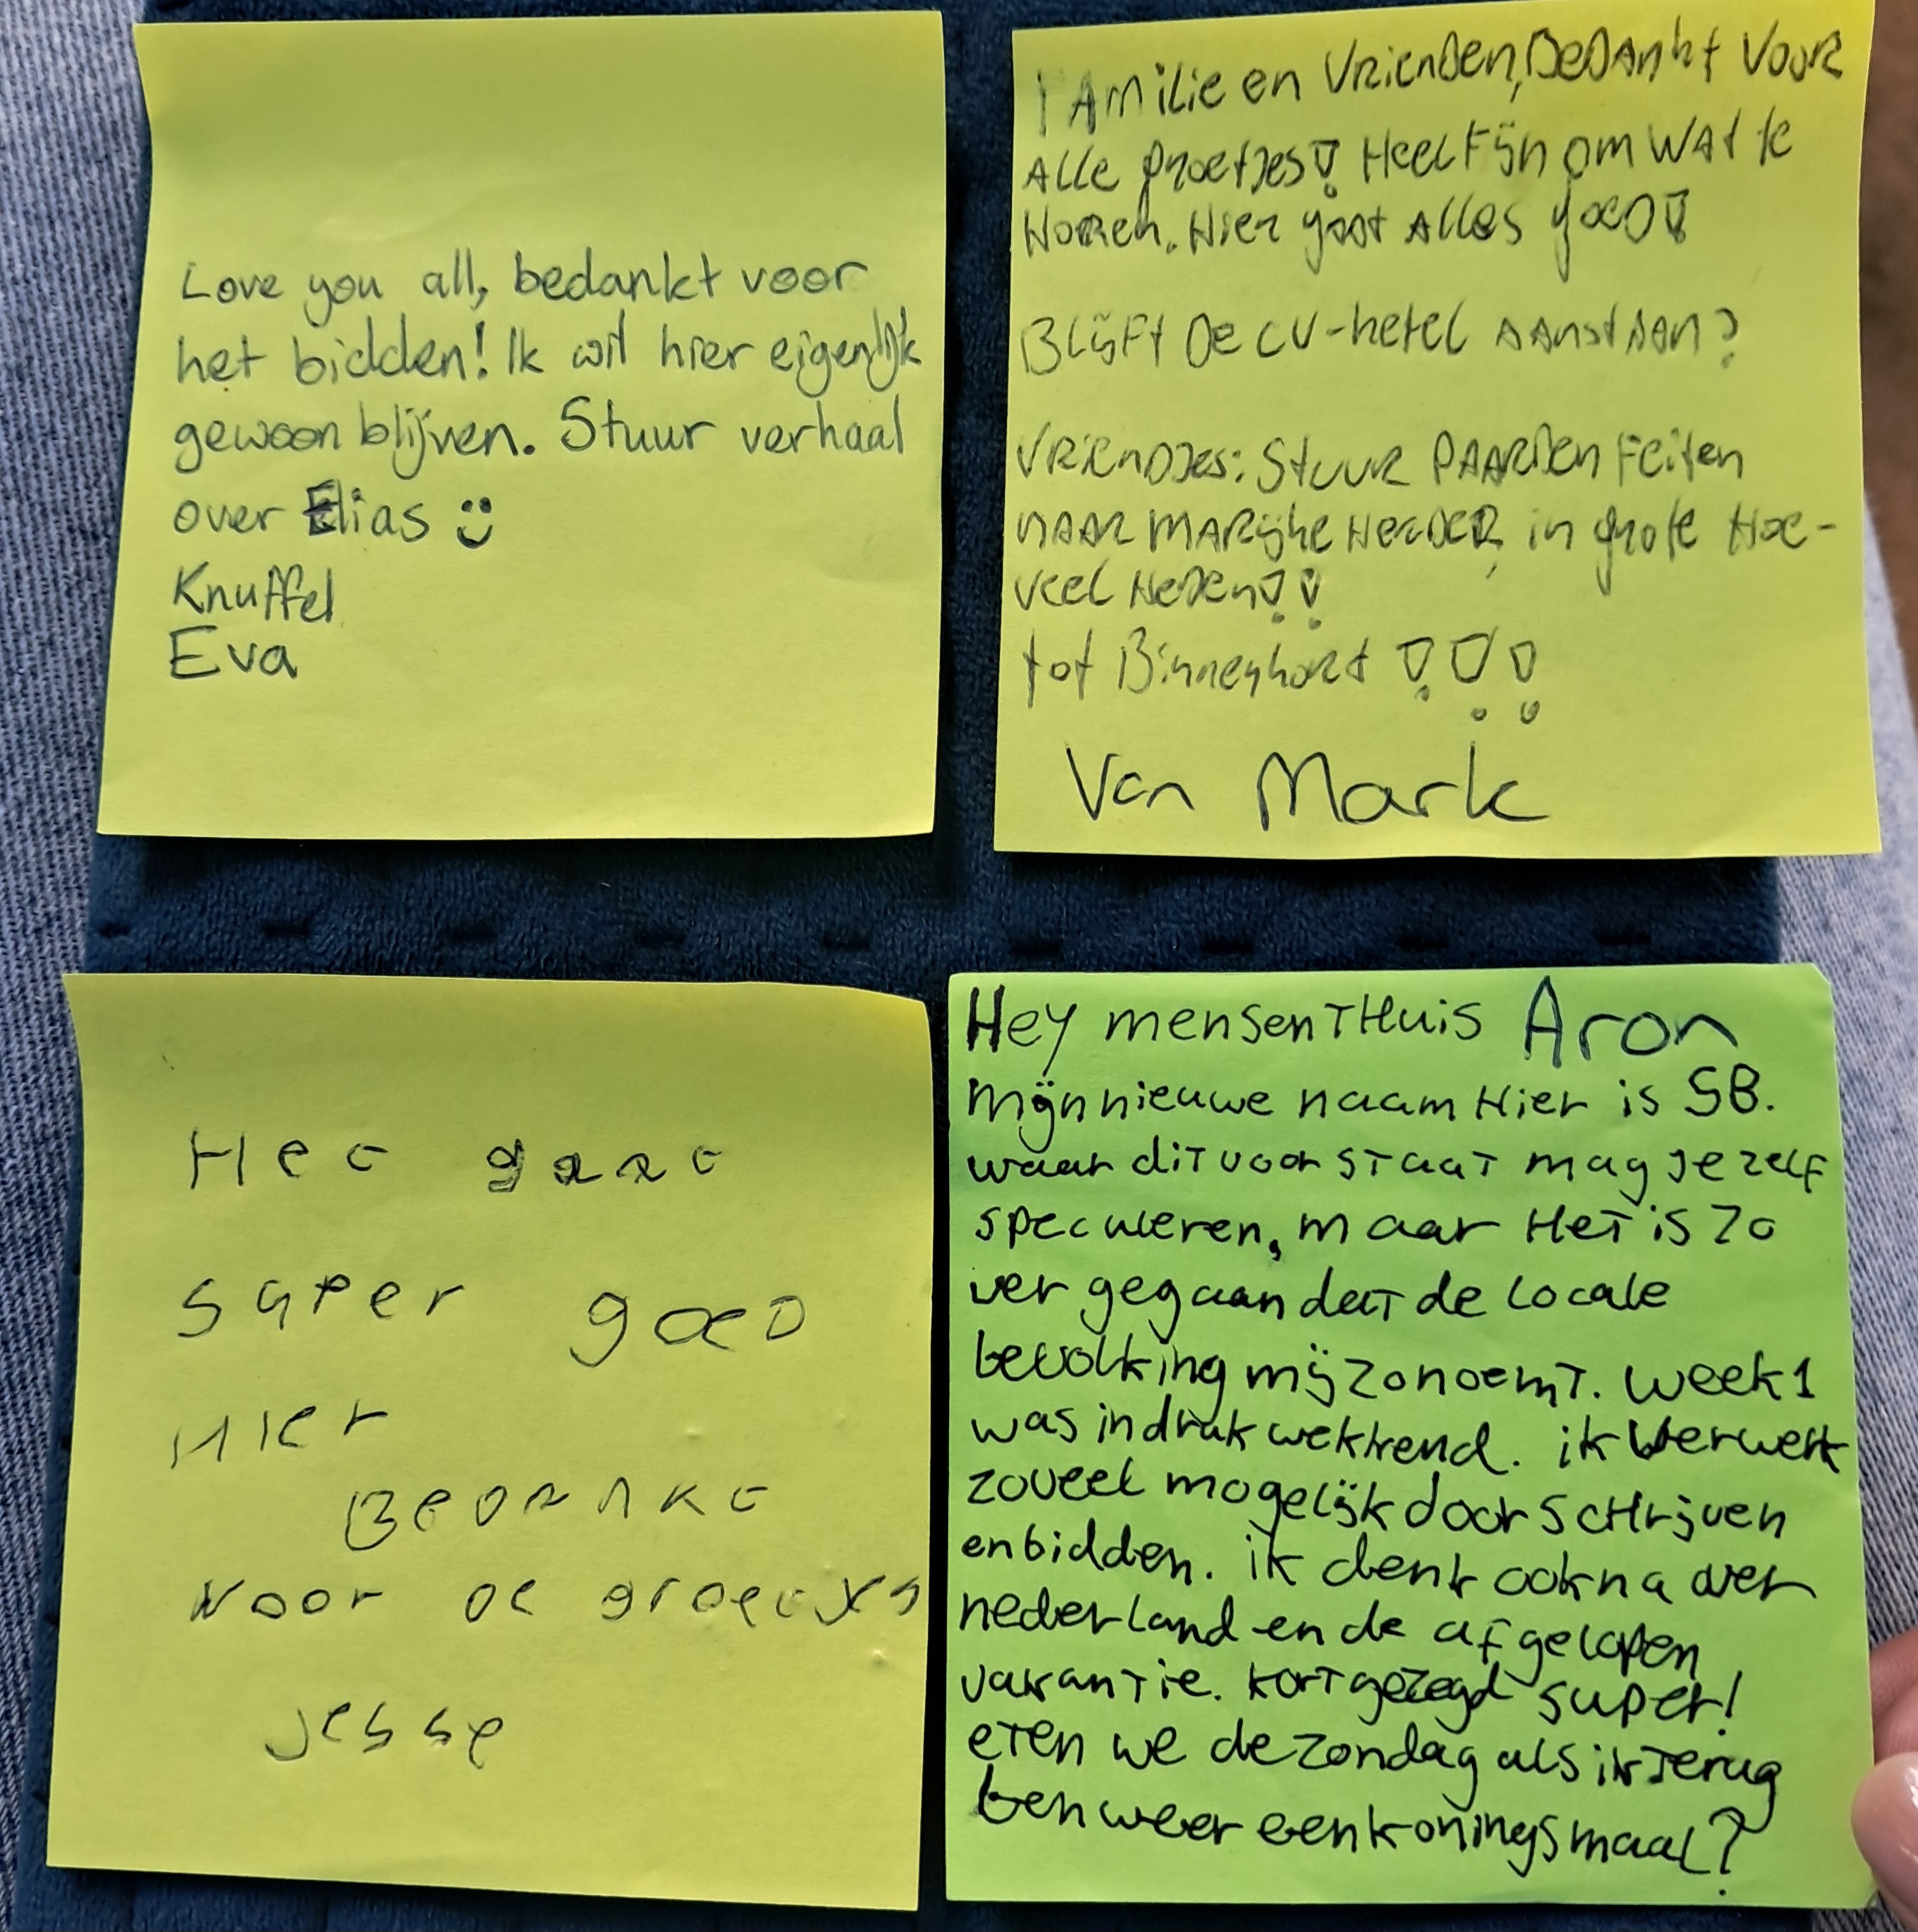 Love you all, bedankt voor
het bidden! Ik wil hier eigenlijk
gewoon blijven. Stuur verhaal
over Elias :)
Knuffel
Eva
FAmilie en VRienDen, BeDAnkt VOOR
Alle groetjes! Heel Fijn om WAt te
Horen. Hier gaat Alles goeD!
Blijft De CV-ketel AAnstAAn?
VRienDJes: Stuur PAARDen Feiten
nAAR MARijke HeRDER, in grote Hoe-
veel HeDen!!
tot Binnenhorst !!!
Van Mark
Het gaat
super goeD
Hier
BeDankt
voor de groetjes
Jesse
Hey mensen THuis Aron
mijn nieuwe naam Hier is SB.
waar diT voor sTaaT mag je zelf
speculeren, maar HeT is zo
ver gegaan daT de locale
bevolking mij zo noemT. week 1
was indrukwekkend. ik verwerk
zoveel mogelijk door scHrijven
en bidden. ik denk ook na over
nederland en de afgelopen
vakanTie. korT gezegd super!
eTen we de zondag als ik Terug
ben weer een koningsmaal?